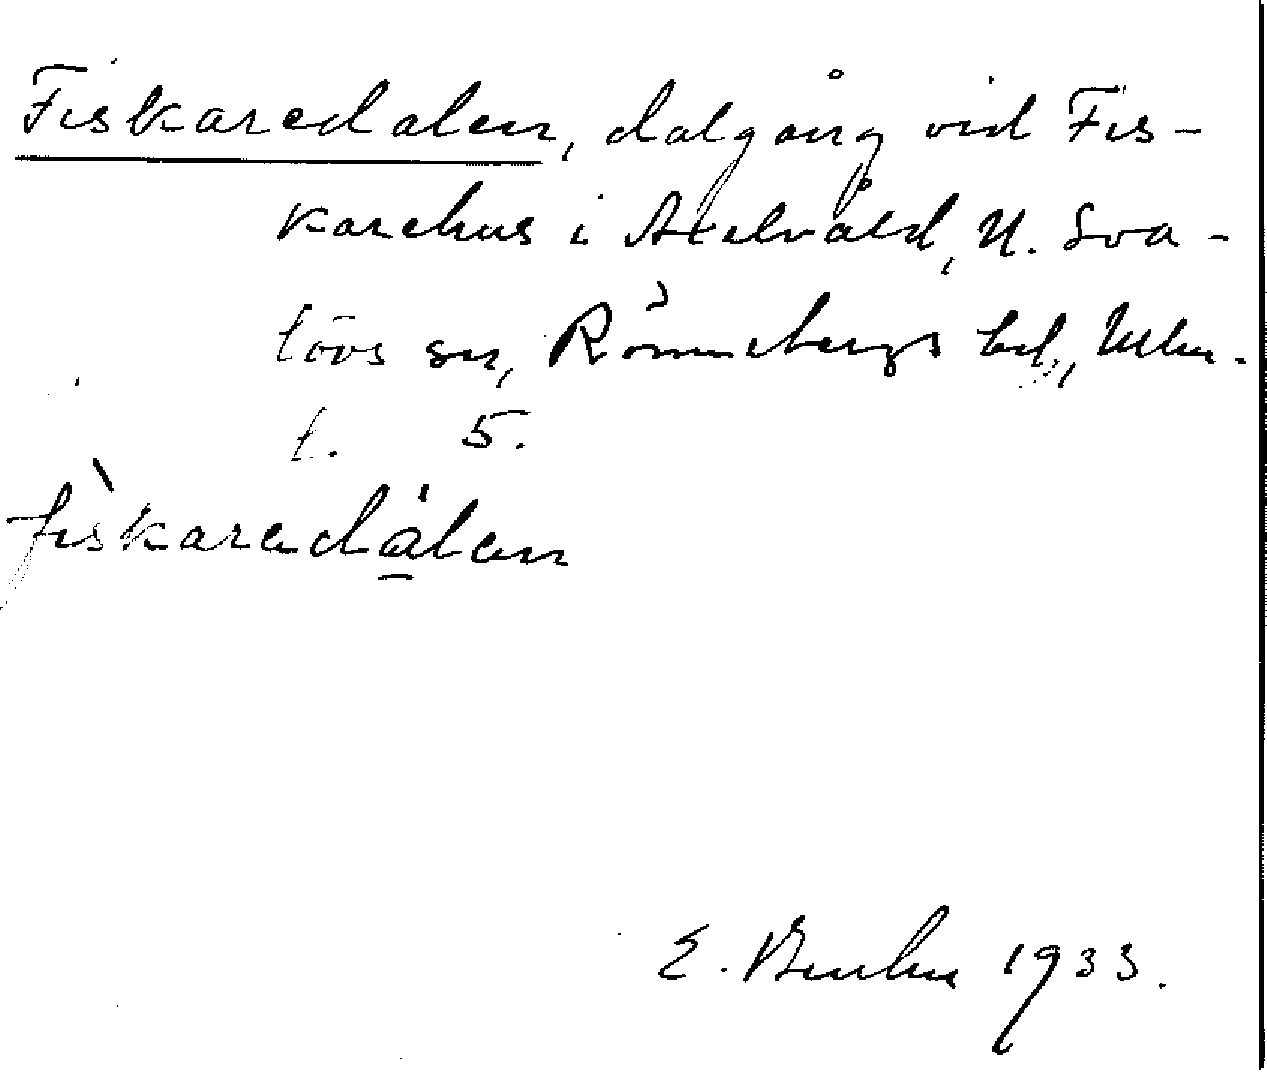 Fiskaredalen, dalgång vid Fis-
karehus i Axelvåld, N. Sva-
lövs sn, Rönnebergs hd, Mlm.
l. 5.
fìskaredálen
E. 1933.